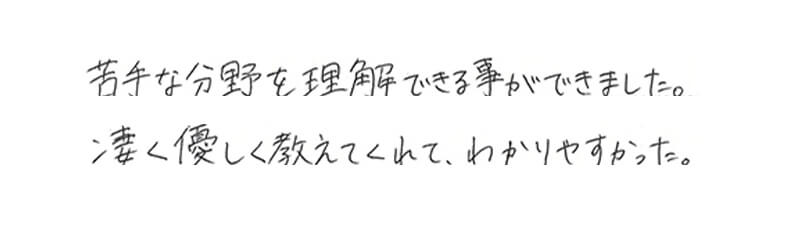 苦手な分野を理解できる事ができました。
凄く優しく教えてくれて、わかりやすかった。